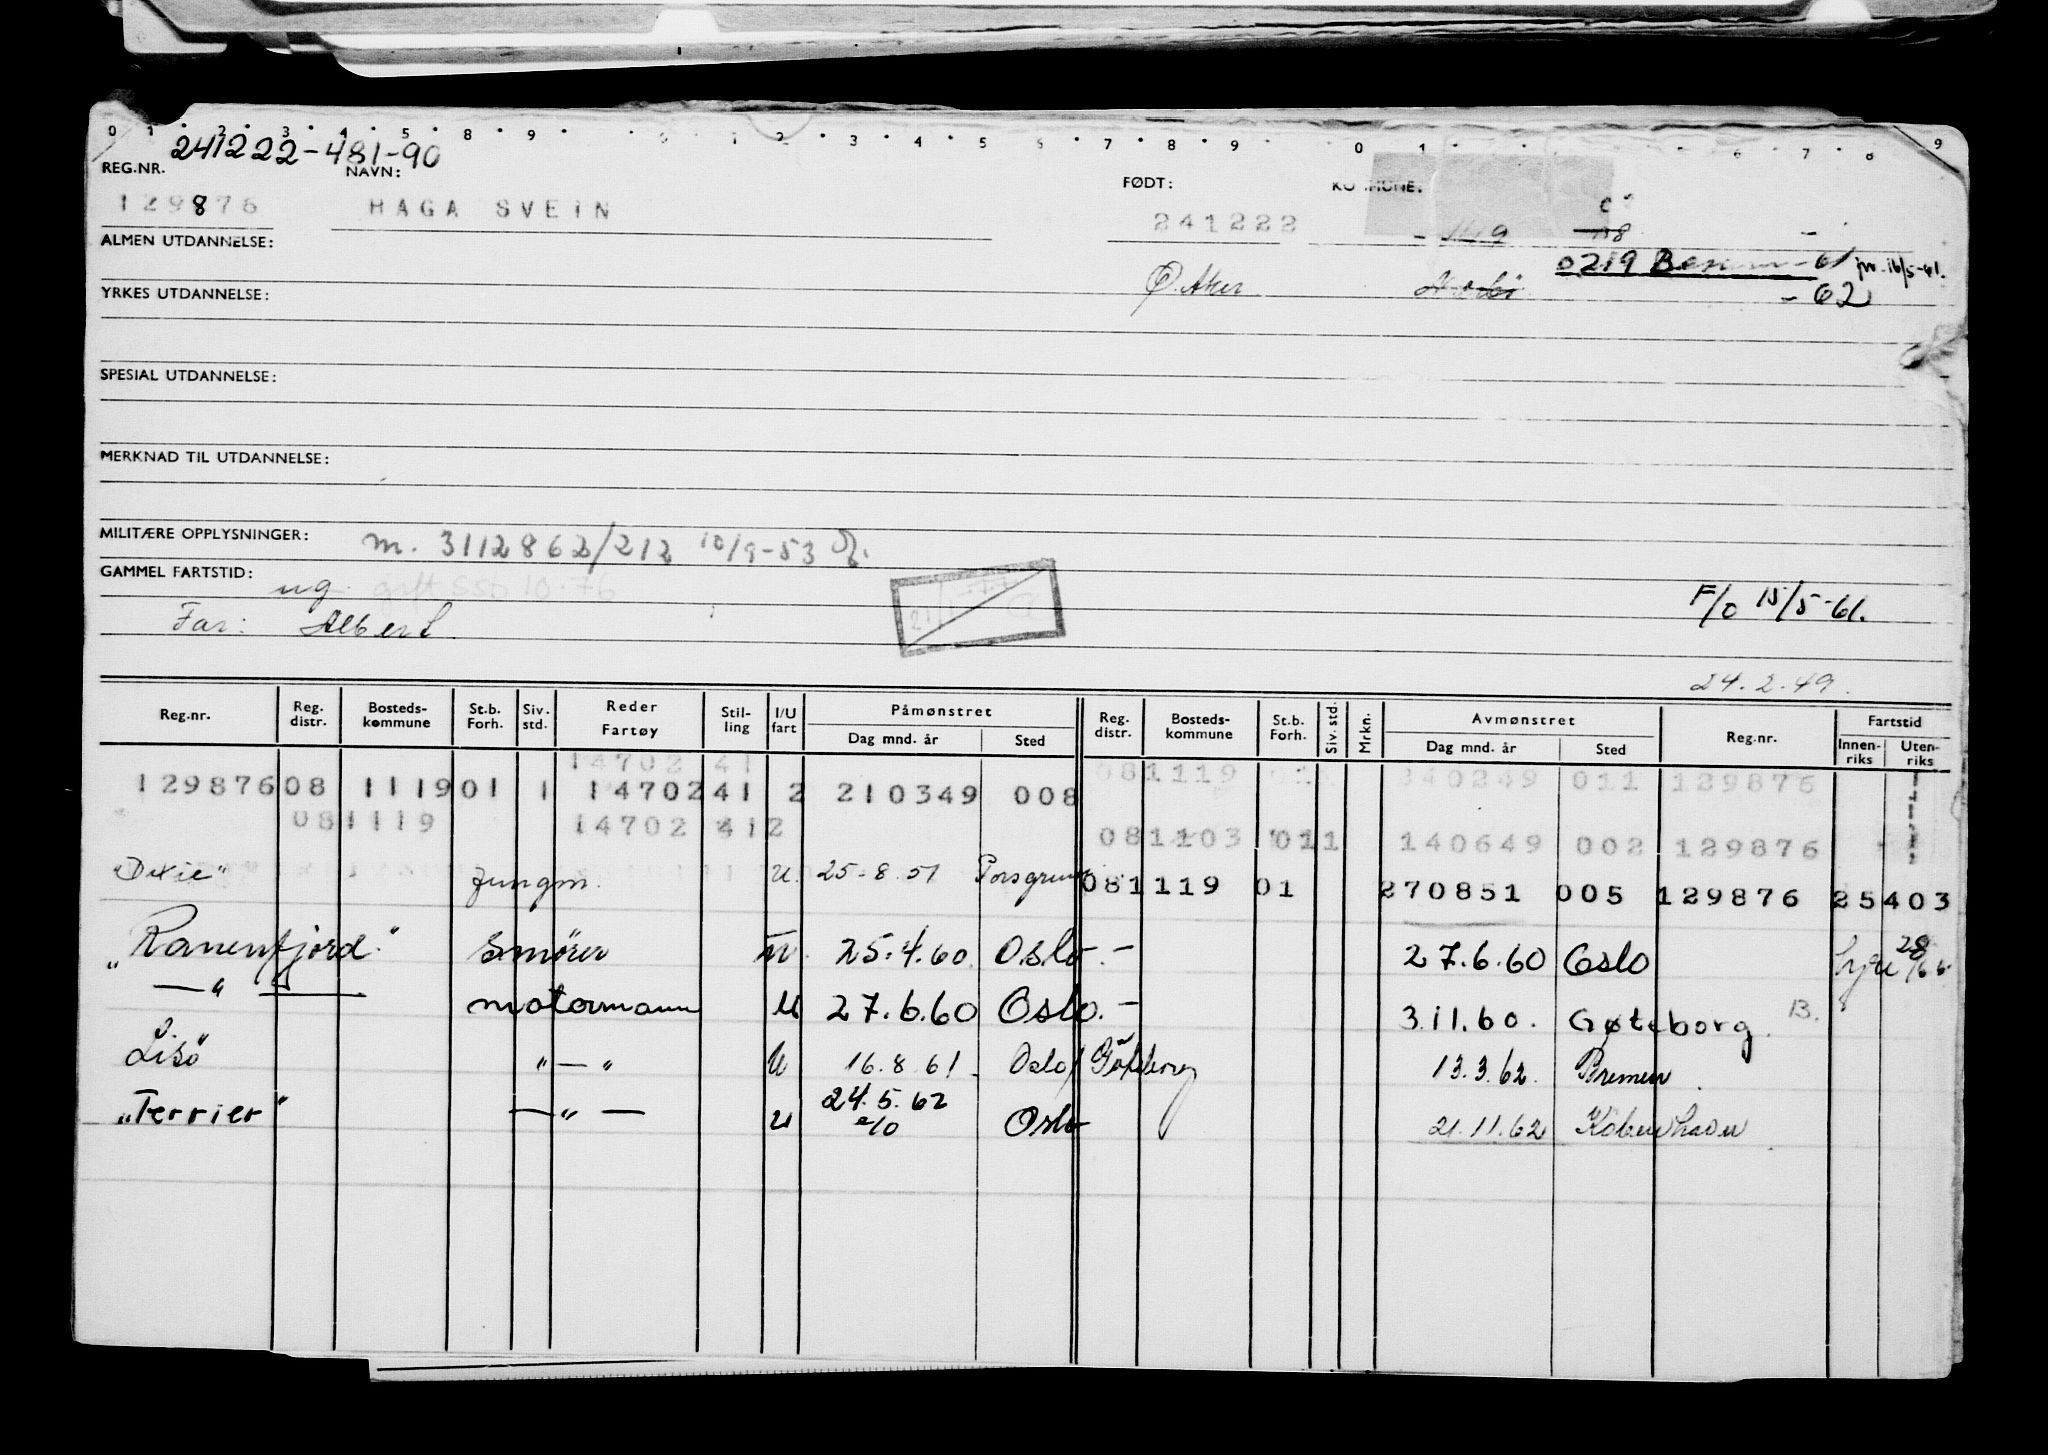 0 1 2 3 4 5 8 9 0 1 2 3 4 5 6 7 8 9 0 1 6 7 8 9
241222-481-90
REG.NR. NAVN: FØDT: KOMMUNE:
129876 HAGA SVEIN 241222
1119
ALMEN UTDANNELSE:
0219 -61 16/5-61.
Ø. Aker
- 62
YRKES UTDANNELSE:
SPESIAL UTDANNELSE:
MERKNAD TIL UTDANNELSE:
MILITÆRE OPPLYSNINGER: m. 3112862/212 10/9-53
GAMMEL FARTSTID: ug. gift Ssb 10.76
F/o 15/5-61.
Far: Albert
24.2.49.
Reg.nr. Reg. distr. Bosteds- kommune St.b. Forh. Siv. std. Reder Fartøy Stil- ling I/U fart Påmønstret Dag mnd. år Sted Reg. distr. Bosteds- kommune St.b. Forh. Siv. std. Mrkn. Avmønstret Dag mnd. år Sted Reg.nr. Fartstid Innen- riks Uten- riks
14702 41 081119 01 240249 011 129876
129876 08 1119 01 1 14702 41 2 210349 008
081119 14702 412 081103 011 140649 002 129876
"Dixie" jungm. U. 25-8.51 Porsgrunn 081119 01 270851 005 129876 25403
"Ranenfjord" Smører U. 25.4.60 Oslo.- 27.6.60 Oslo
—"— motormann U 27.6.60 Oslo.- 3.11.60. Gøteborg. 13.
Lisö "—" U 16.8.61 Oslo/Göteborg 13.3.62. Bremen
"Terrier" —"— U 24.5.62 Oslo 21.11.62 København